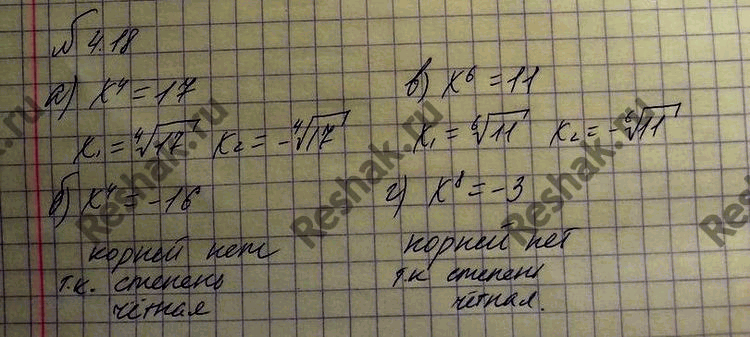 № 4.18
а) x⁴ = 17
x₁ = ⁴√17 x₂ = -⁴√17
б) x⁴ = -16
корней нет
т.к. степень
чётная
в) x⁶ = 11
x₁ = ⁶√11 x₂ = -⁶√11
г) x⁸ = -3
корней нет
т.к степень
чётная.
Reshak.ru
Reshak.ru
Reshak.ru
Reshak.ru